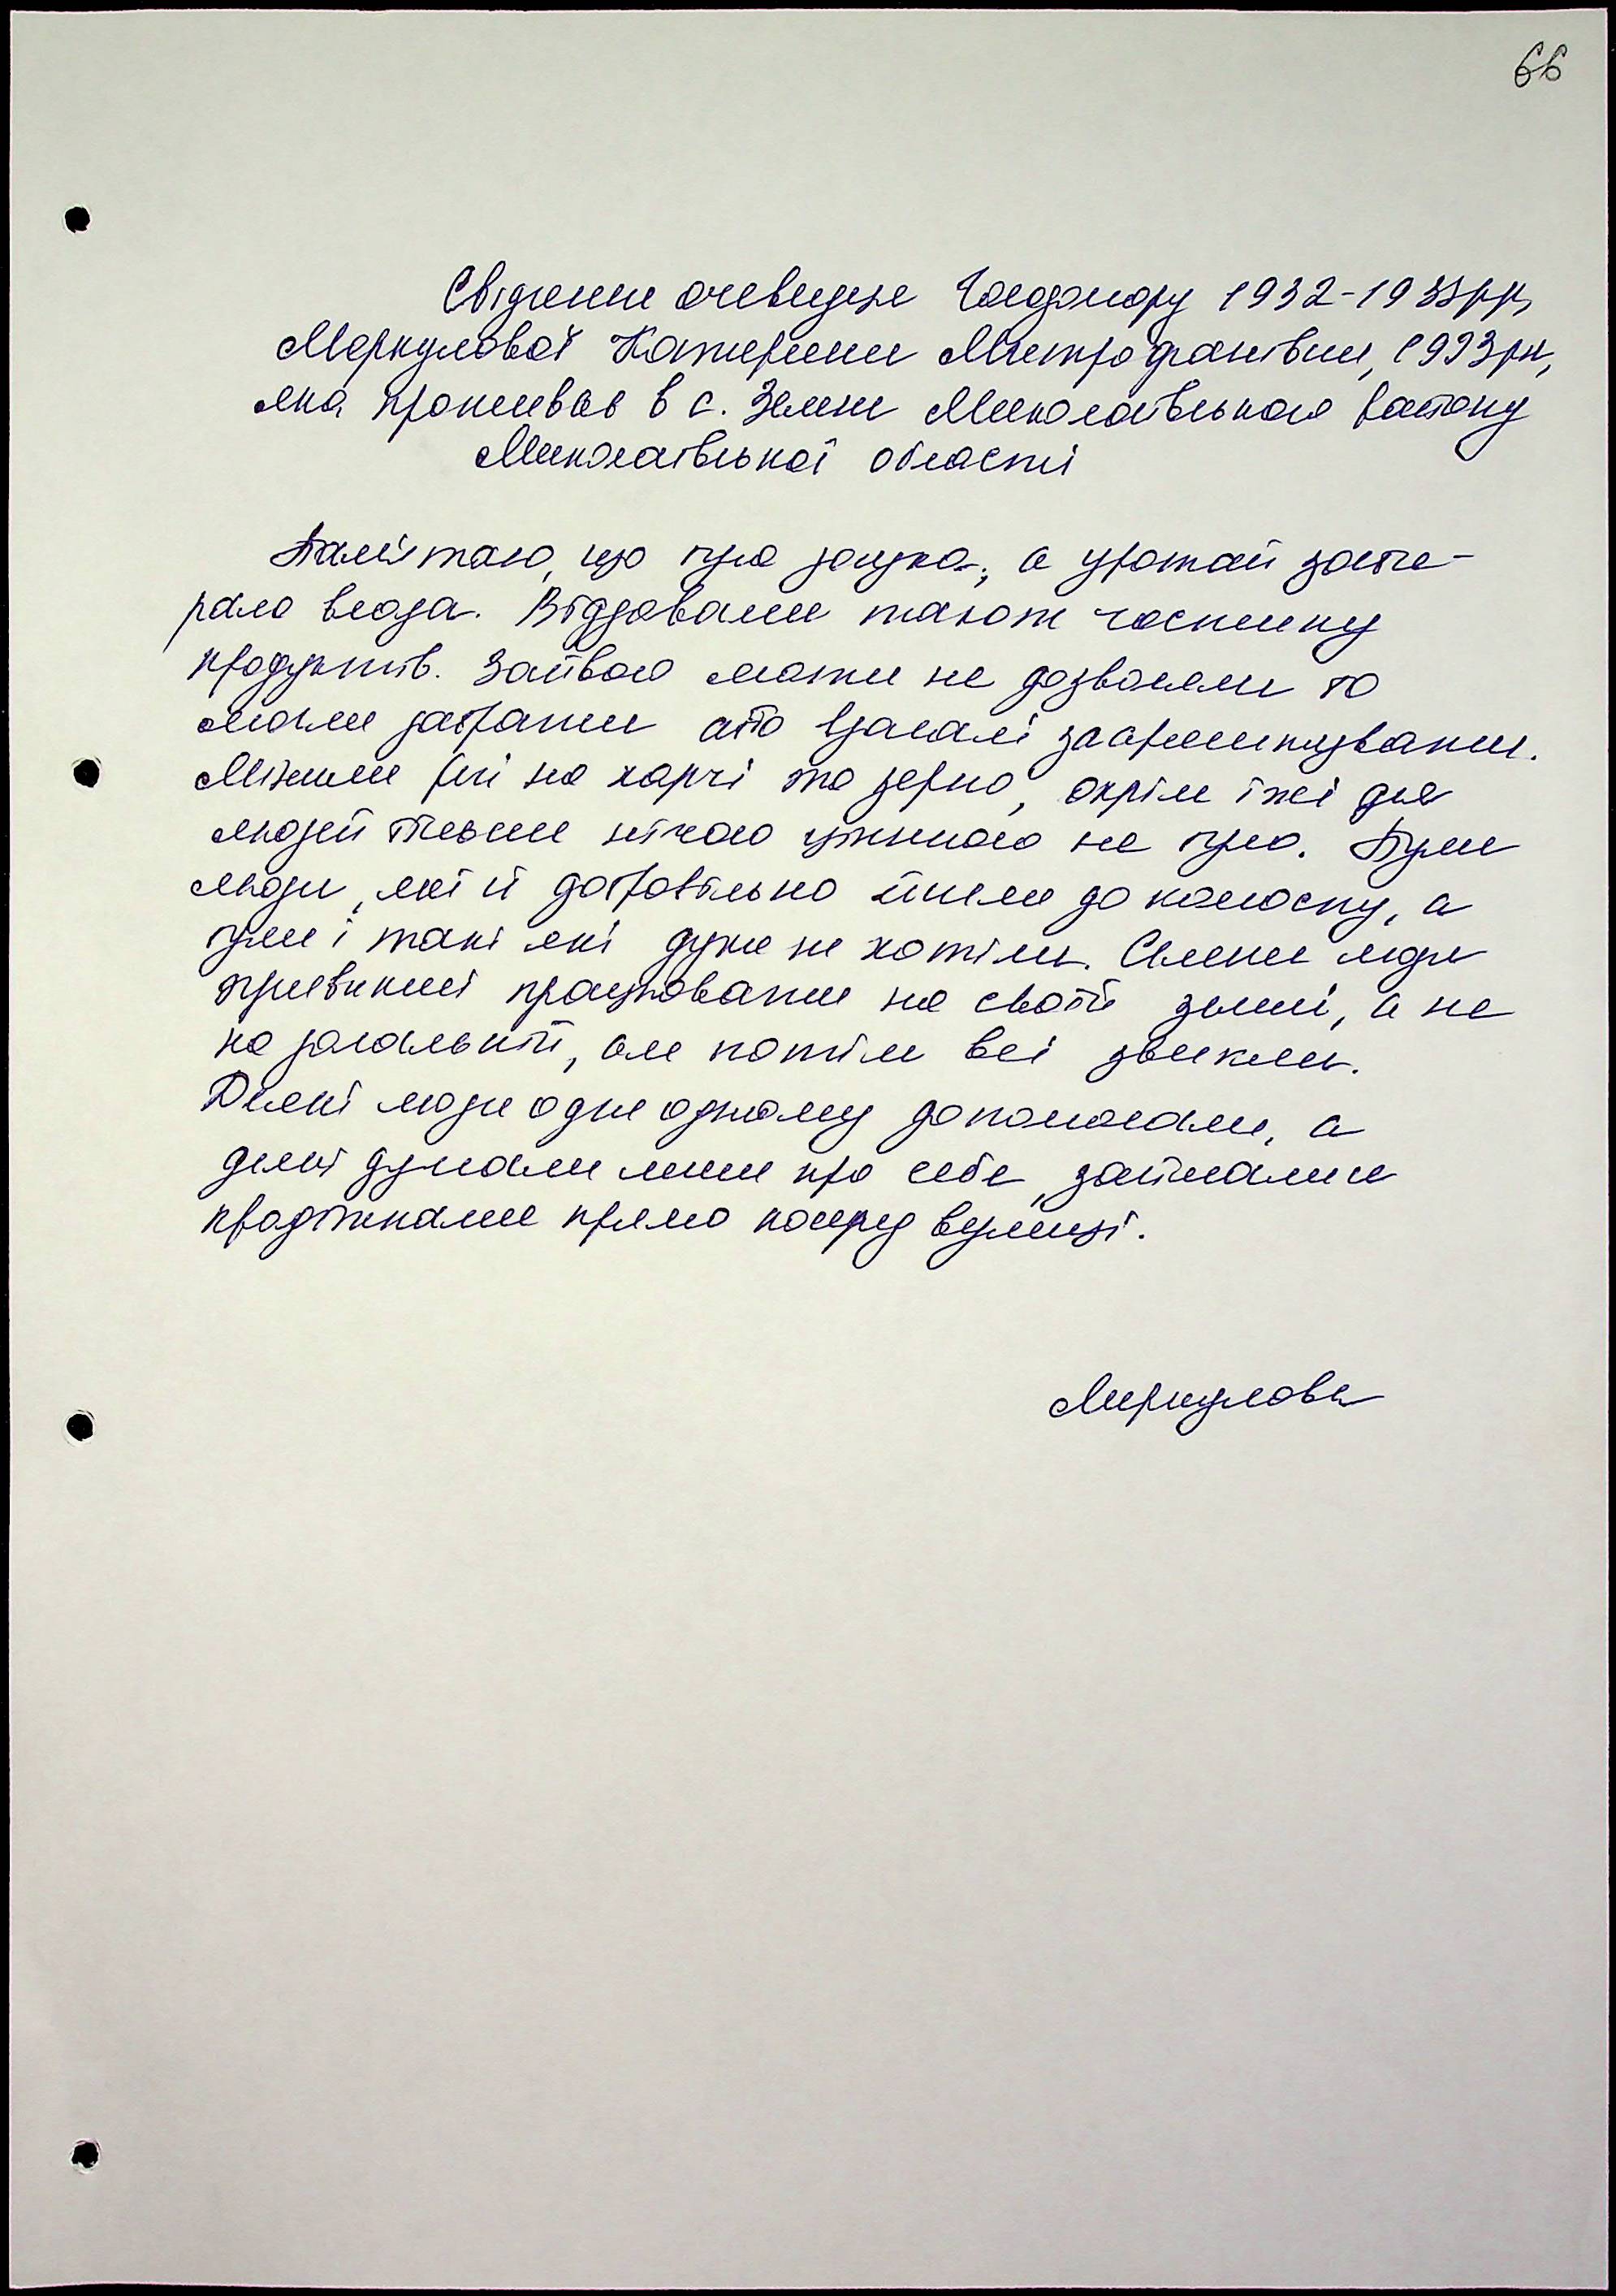 66
Свідчення очевидця Голодомору 1932-1933рр,
Меркулової Катерини Митрофанівни, 1923рн,
яка проживає в с. Зелене Миколаївського району
Миколаївської області
Пам'ятаю, що була засуха, а урожай заби-
рала влада. Віддавали також частинку
продуктів. Зайвого мати не дозволяли бо
могли забрати або взагалі заарештувати.
Міняли речі на харчі та зерно, окрім їжі для
людей більше нічого цінного не було. Були
люди, які й добровільно йшли до колоспу, а
були і такі які дуже не хотіли. Селяни люди
привикші працювати на своїй землі, а не
на загальній, але потім всі звикли.
Деякі люди одне одному допомагали, а
деякі думали лише про себе, займалися
крадіжками прямо посеред вулиці.
Меркулова